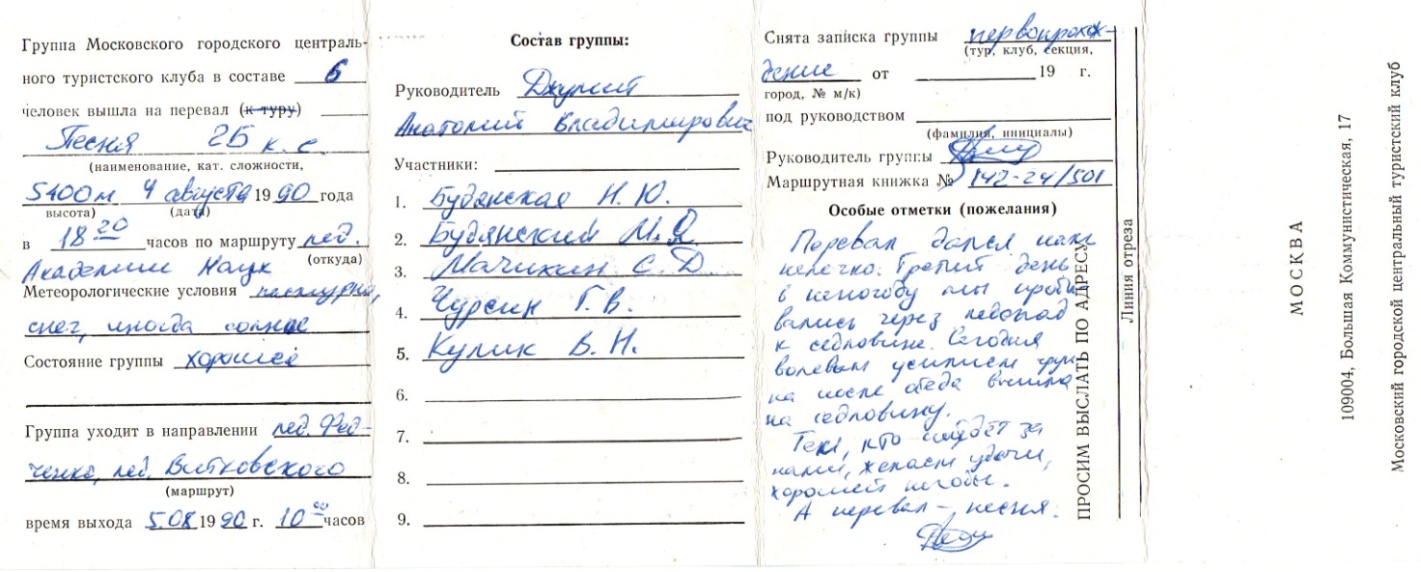 Группа Московского городского централь-
ного туристского клуба в составе 6
человек вышла на перевал (к туру)
Песня 2Б к.с.
(наименование, кат. сложности,
5400м 4 августа 1990 года
высота) (дата)
в 18 20 часов по маршруту лед.
Академии Наук (откуда)
Метеорологические условия пасмурно,
снег, иногда солнце
Состояние группы хорошее
Группа уходит в направлении лед. Фед-
ченко, лед. Витковского
(маршрут)
время выхода 5.08 1990 г. 10 00 часов
Состав группы:
Руководитель Джулий
Анатолий Владимирович
Участники:
1. Будянская Н. Ю.
2. Будянский М. Я.
3. Мачихин С. Д.
4. Чурсин Г. В.
5. Кулик В. Н.
6.
7.
8.
9.
Снята записка группы первопрохож-
(тур, клуб, секция,
дение от 19 г.
город, № м/к)
под руководством
(фамилия, инициалы)
Руководитель группы
Маршрутная книжка № 142-24/501
Особые отметки (пожелания)
Перевал дался нам
нелегко. Третий день
в непогоду мы проби
вались через ледопад
к седловине. Сегодня
волевым усилием груп
па после обеда вышла
на седловину.
Тем, кто пойдёт за
нами, желаем удачи,
хорошей погоды.
А перевал – песня.
ПРОСИМ ВЫСЛАТЬ ПО АДРЕСУ
Линия отреза
МОСКВА
109004, Большая Коммунистическая, 17
Московский городской центральный туристский клуб